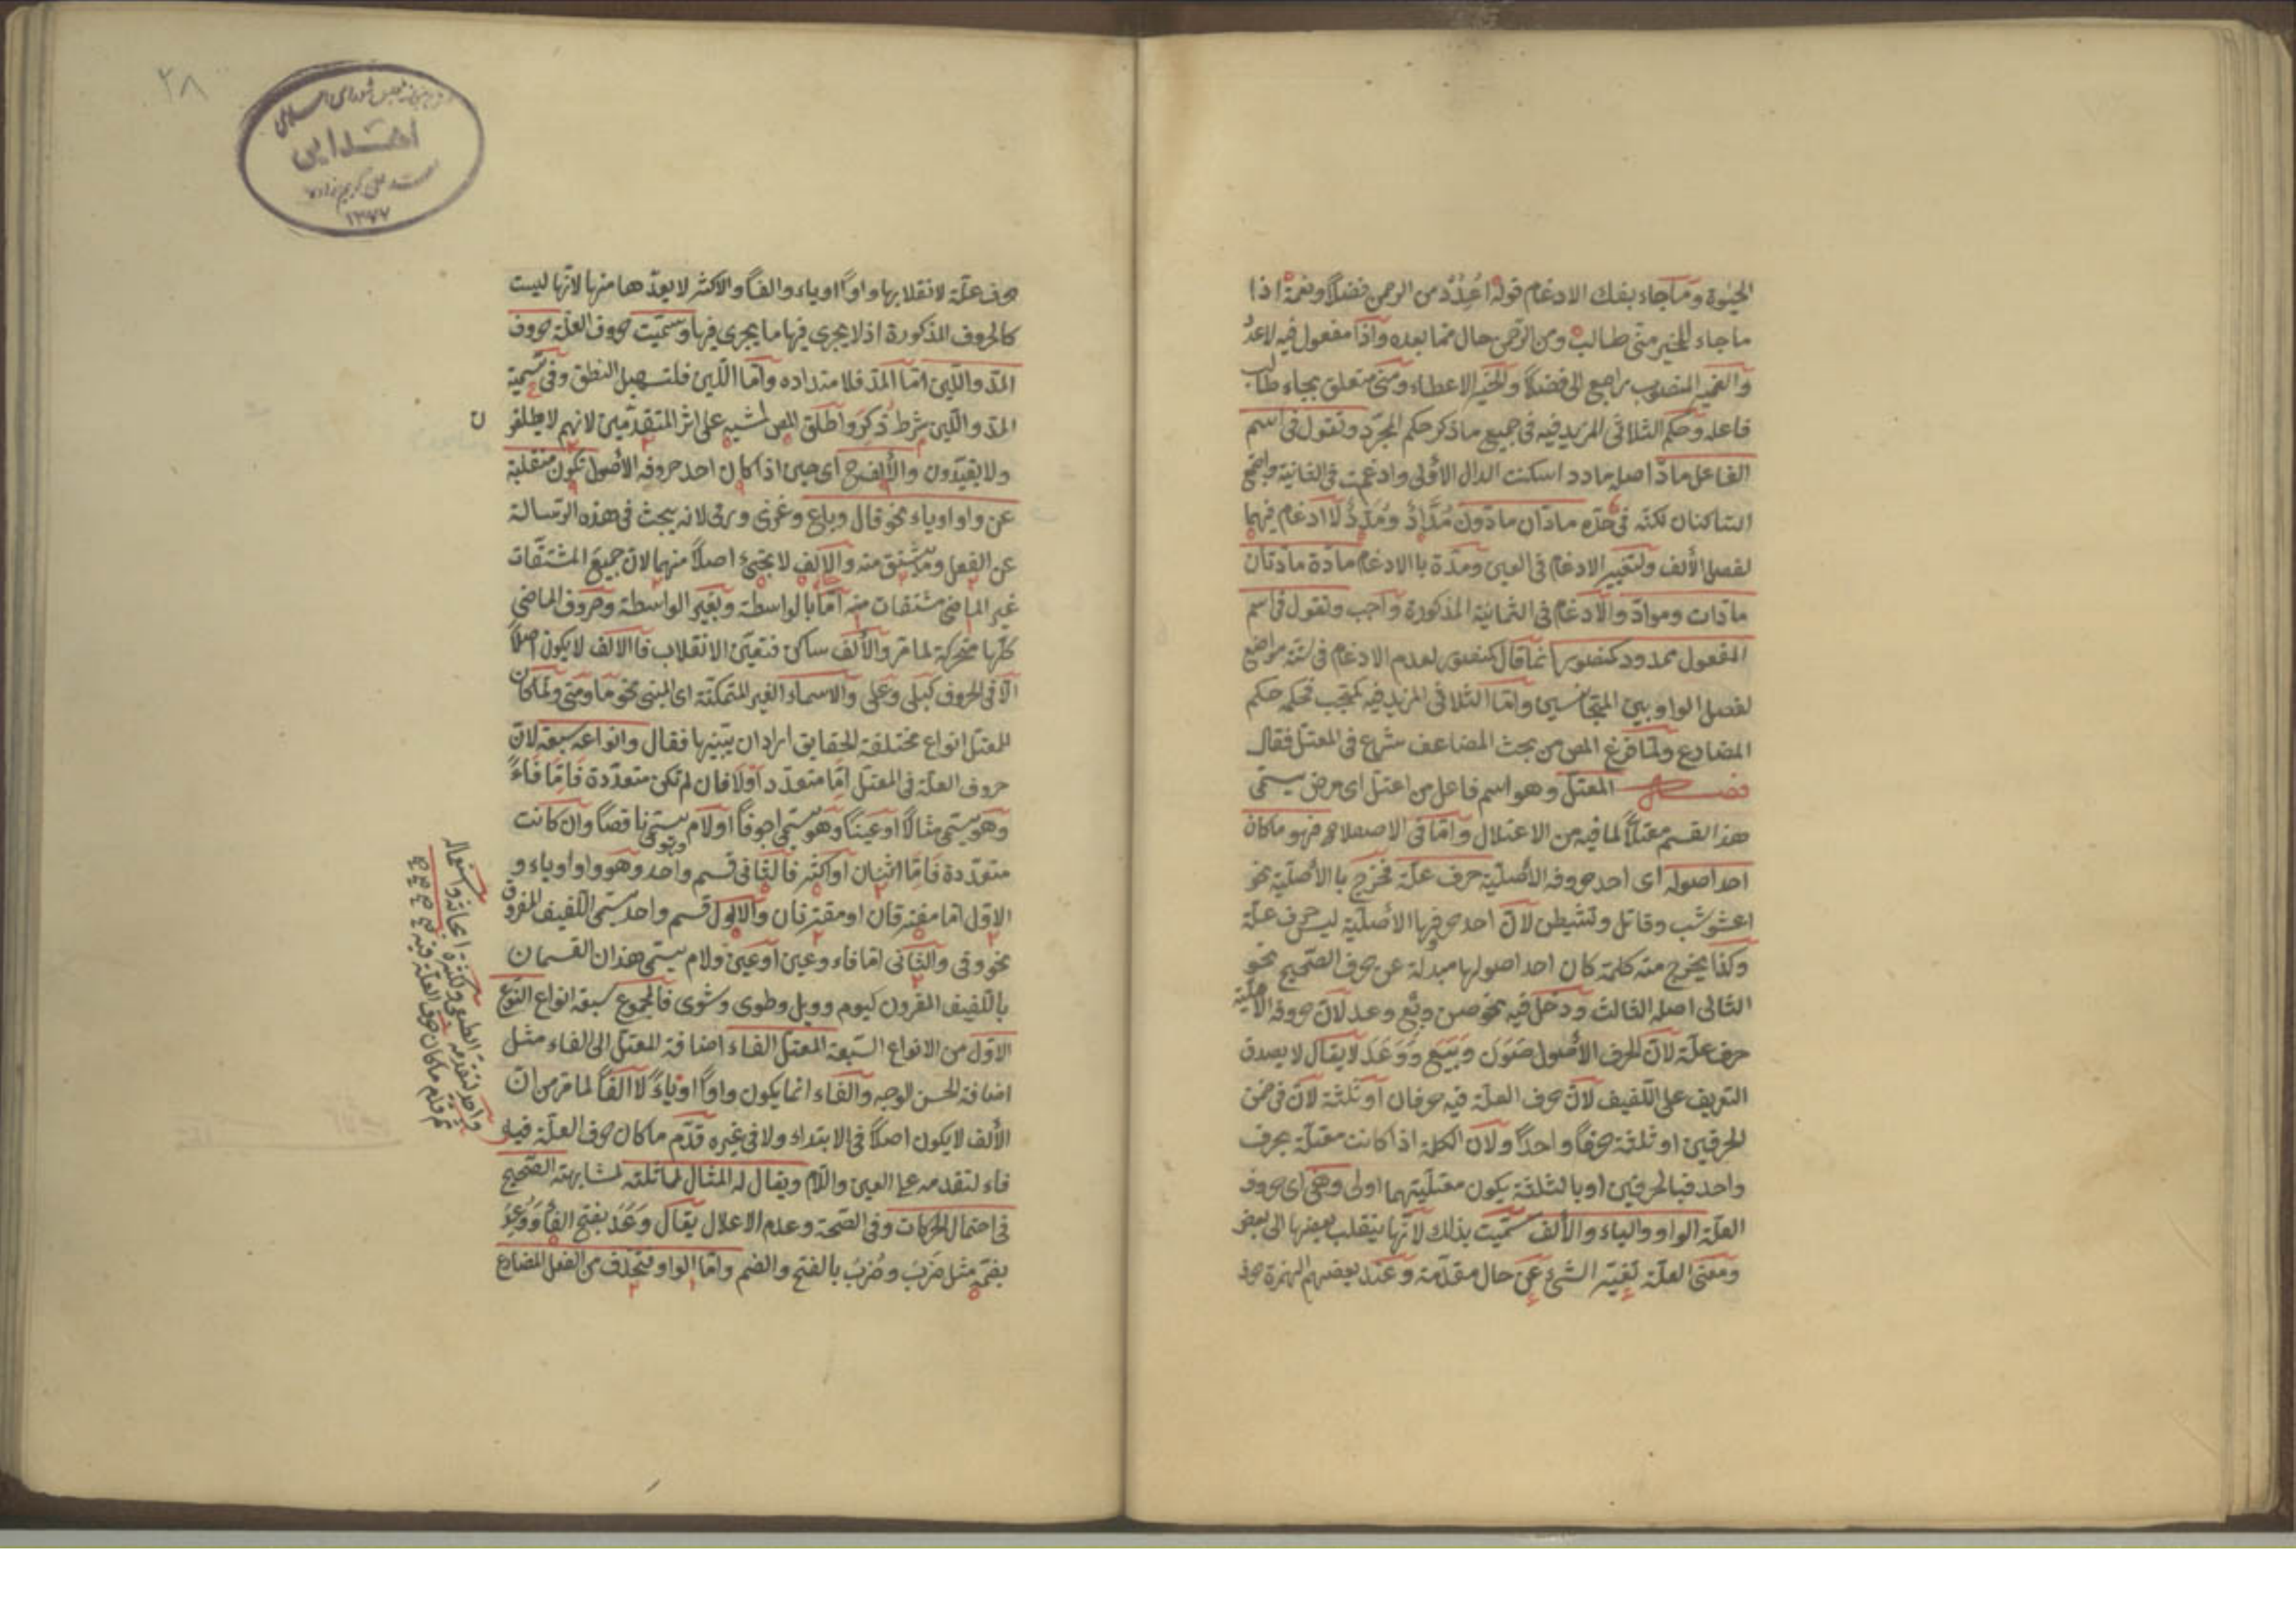 الحيوة ومما جاء بفك الادغام قوله اعدد من الرحمن فضلا ونعمة اذا
ما جاء للخير متى طالب ومن الرحمن حال مما بعده واذا مفعول فيه لاعدد
والضمير المنصوب راجع الى فضلا والخير الاعطاء ومتى متعلق بجاء طالب
فاعله وحكم الثلاثى المزيد فيه فى جميع ما ذكر حكم المجرد وتقول فى اسم
الفاعل ماد اصله مادد اسكنت الدال الاولى وادغمت فى الثانية
الساكنان لكنه فى حده مادان مادون مداد ومدد لا ادغام فيهما
لفصل الألف ولتغيير الادغام فى العين ومدة با الادغام مادة مادتان
مادات ومواد والادغام فى الثمانية المذكورة واجب وتقول فى اسم
المفعول ممدود كمنصور انما قال كمنصور لعدم الادغام فى ستة مواضع
لفصل الواو بين المتجانسين واما الثلاثى المزيد فيه فحكمه حكم
المضارع ولما فرغ المص من بحث المضاعف شرع فى المعتل فقال
فصل المعتل وهو اسم فاعل من اعتل اى مرض يسمى
هذا القسم معتلا لما فيه من الاعتلال واما فى الاصطلاح فهو ما كان
احد اصوله اى احد حروفه الأصلية حرف علة فخرج با الأصلية نحو
اعشوشب وقاتل وتشيطن لان احد حروفها الأصلية ليس حرف علة
وكذا يخرج منه كلمة كان احد اصولها مبدلة عن حرف الصحيح نحو
الثالى اصله الثالث ودخل فيه نحو صن وبع وعد لان حروفه الأصلية
حرف علة لان الحرف الأصول صون وبيع ووعد لا يقال لا يصدق
التعريف على اللفيف لان حرف العلة فيه حرفان أو ثلثة لان فى ضمن
الحرفين او ثلثة حرفا واحدا ولان الكلمة اذا كانت معتلة بحرف
واحد فبالحرفين او بالثلثة يكون معتليتهما اولى وهى اى حروف
العلة الواو والياء والألف سميت بذلك لانها ينقلب بعضها الى بعض
ومعنى العلة تغير الشئ عن حال مقدمة وعند بعضهم الهمزة حرف
٢٨
كتابخانه مجلس شوراى اسلامى
اهدايى
كريم زاده
١٣٧٧
حرف علة لانقلابها واوا او ياء والفا والاكثر لا يعدها منها لانها ليست
كالحروف المذكورة اذ لا يجرى فيها ما يجرى فيها وسميت حروف العلة حروف
المد واللين اما المد فلامتداده واما اللين فلتسهيل النطق وفى تسمية
المد واللين شرط ذكر واطلق المص لمشيه على اثر المتقدمين لانهم لا يطلقون
ولا يقيدون والألف ح اى حين اذا كان احد حروفه الأصول تكون منقلبة
عن واو او ياء نحو قال وباع وغزى ورمى لانه يبحث فى هذه الرسالة
عن الفعل وما يشتق منه والالف لا تجئ اصلا منهما لان جميع المشتقات
غير الماضى مشتقات منه اما بالواسطة وبغير الواسطة وحروف الماضى
كلها متحركة لما مر والألف ساكن فتعين الانقلاب فا الالف لا يكون اصلا
الا فى الحروف كبلى وعلى والاسماء الغير المتمكنة اى المبنى نحو ما ومتى ولما كان
للمعتل انواع مختلفة الحقايق اراد ان يبينها فقال وانواعه سبعة لان
حروف العلة فى المعتل اما متعدد اولا فان لم تكن متعددة فاما فاء
وهو يسمى مثالا او عينا وهو يسمى اجوفا او لام يسمى ناقصا وان كانت
متعددة فاما اثنان او اكثر فالثانى قسم واحد وهو واو او ياء و
الاول اما مفترقان او مقترنان والاول قسم واحد يسمى اللفيف المفروق
نحو وقى والثانى اما فاء وعين أو عين ولام يسمى هذان القسمان
باللفيف المقرون كيوم وويل وطوى وشوى فالمجموع سبعة انواع النوع
الاول من الانواع السبعة المعتل الفاء اضافة المعتل الى الفاء مثل
اضافة الحسن الوجه والفاء انما يكون واوا او ياء لا الفا لما مر من ان
الألف لا يكون اصلا فى الابتداء ولا فى غيره قدم ما كان حرف العلة فيه
فاء لتقدمه على العين واللام ويقال له المثال لمماثلته لمشابهته الصحيح
فى احتمال الحركات وفى الصحة وعدم الاعلال يقال وعد بفتح الفاء ووعد
بضمه مثل ضرب وضرب بالفتح والضم واما الواو فتحذف من الفعل المضارع